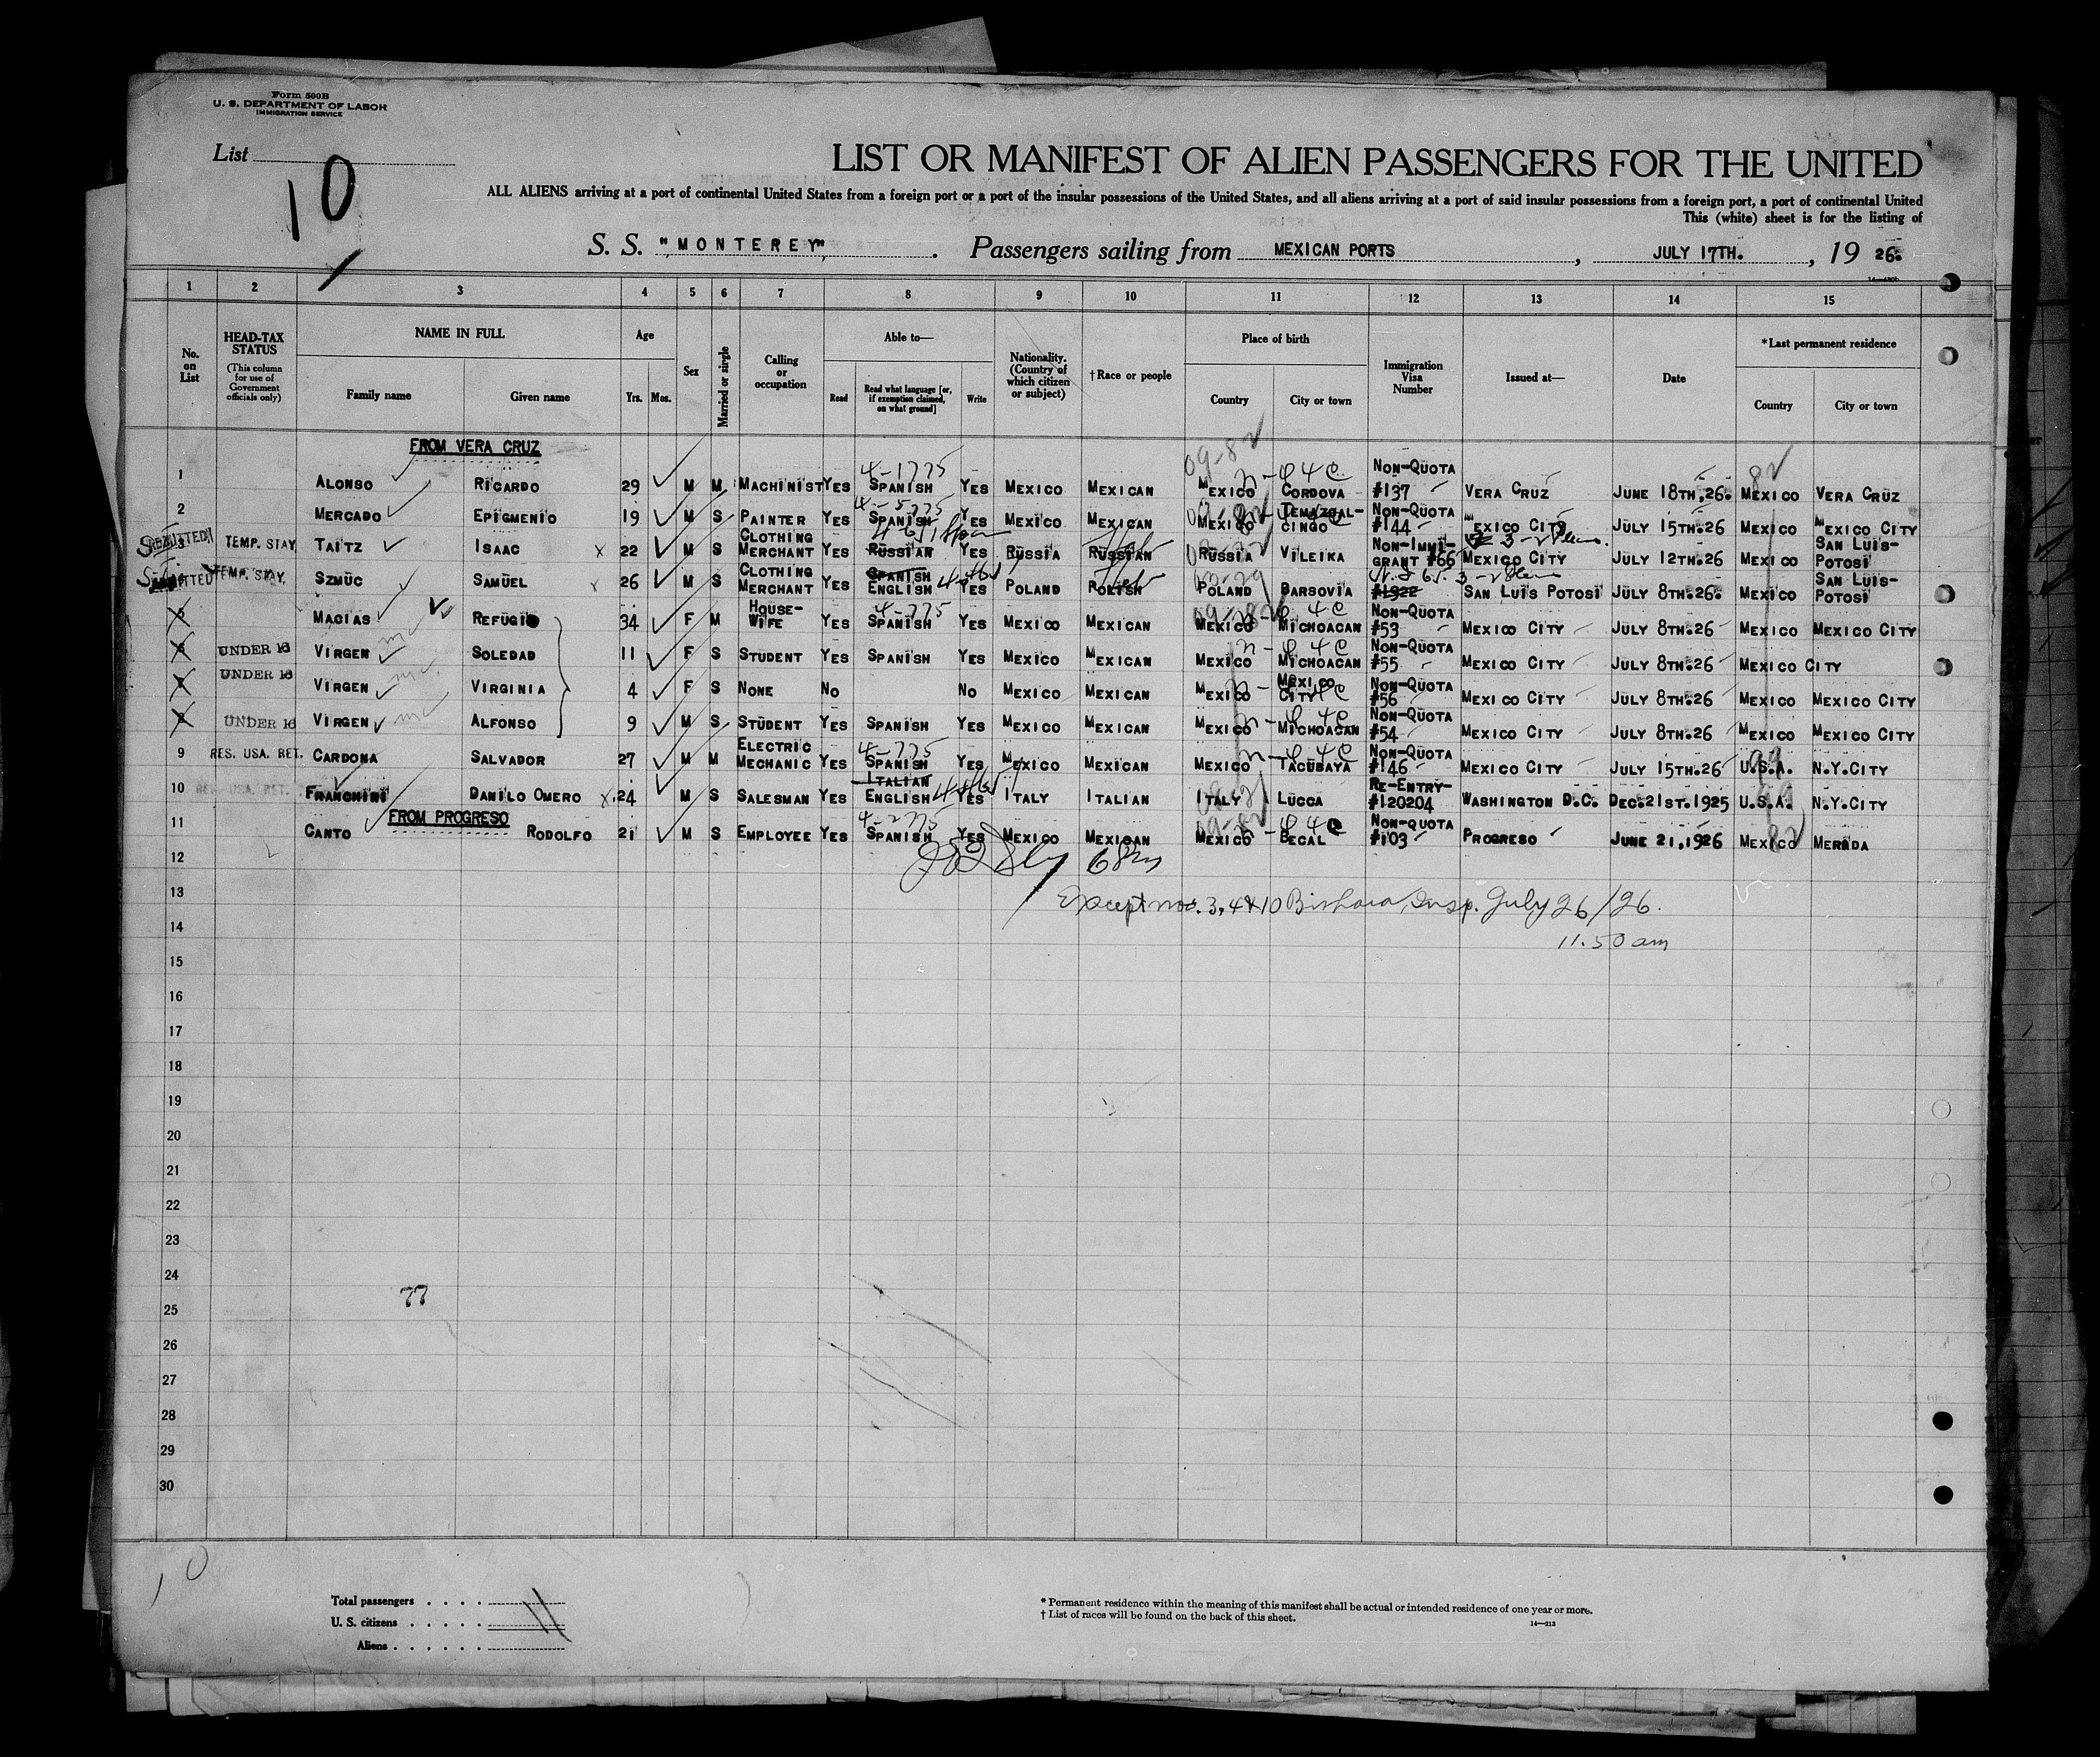 Form 500B
U. S. DEPARTMENT OF LABOR
IMMIGRATION SERVICE
List
10
LIST OR MANIFEST OF ALIEN PASSENGERS FOR THE UNITED
ALL ALIENS arriving at a port of continental United States from a foreign port or a port of the insular possessions of the United States, and all aliens arriving at a port of said insular possessions from a foreign port, a port of continental United
This (white) sheet is for the listing of
S. S. "MONTEREY". Passengers sailing from MEXICAN PORTS, JULY 17TH., 1926.
1 2 3 4 5 6 7 8 9 10 11 12 13 14 15
No. on List
HEAD-TAX STATUS (This column for use of Government officials only)
NAME IN FULL
Family name Given name
Age
Yrs. Mos.
Sex
Married or single
Calling or occupation
Able to—
Read Read what language [or, if exemption claimed, on what ground] Write
Nationality. (Country of which citizen or subject)
† Race or people
Place of birth
Country City or town
Immigration Visa Number
Issued at—
Date
*Last permanent residence
Country City or town
FROM VERA CRUZ
1 ALONSO RICARDO 29 M M MACHINIST YES SPANISH YES MEXICO MEXICAN MEXICO CORDOVA NON-QUOTA #137 VERA CRUZ JUNE 18TH,26. MEXICO VERA CRUZ
2 MERCADO EPIGMENIO 19 M S PAINTER YES SPANISH YES MEXICO MEXICAN MEXICO TEMAZCAL-CINGO NON-QUOTA #144 MEXICO CITY JULY 15TH.26 MEXICO MEXICO CITY
3 ADMITTED TEMP. STAY TAITZ ISAAC 22 M S CLOTHING MERCHANT YES RUSSIAN YES RUSSIA RUSSIAN RUSSIA VILEIKA NON-IMMI-GRANT #66 MEXICO CITY JULY 12TH.26 MEXICO SAN LUIS-POTOSI
ADMITTED TEMP. STAY. SZMUC SAMUEL 26 M S CLOTHING MERCHANT YES SPANISH ENGLISH YES POLAND POLISH POLAND BARSOVIA #1922 SAN LUIS POTOSI JULY 8TH.26. MEXICO SAN LUIS-POTOSI
5 MACIAS REFUGIO 34 F M HOUSE-WIFE YES SPANISH YES MEXICO MEXICAN MEXICO MICHOACAN NON-QUOTA #53 MEXICO CITY JULY 8TH.26 MEXICO MEXICO CITY
6 UNDER 16 VIRGEN SOLEDAD 11 F S STUDENT YES SPANISH YES MEXICO MEXICAN MEXICO MICHOACAN NON-QUOTA #55 MEXICO CITY JULY 8TH.26 MEXICO CITY
7 UNDER 16 VIRGEN VIRGINIA 4 F S NONE NO NO MEXICO MEXICAN MEXICO MEXICO CITY NON-QUOTA #56 MEXICO CITY JULY 8TH.26 MEXICO MEXICO CITY
8 UNDER 16 VIRGEN ALFONSO 9 M S STUDENT YES SPANISH YES MEXICO MEXICAN MEXICO MICHOACAN NON-QUOTA #54 MEXICO CITY JULY 8TH.26 MEXICO MEXICO CITY
9 RES. USA. RET. CARDONA SALVADOR 27 M M ELECTRIC MECHANIC YES SPANISH YES MEXICO MEXICAN MEXICO TACUBAYA NON-QUOTA #146 MEXICO CITY JULY 15TH.26 U.S.A. N.Y.CITY
10 RES. USA. RET. FRANCHINI DANILO OMERO 24 M S SALESMAN YES ITALIAN ENGLISH YES ITALY ITALIAN ITALY LUCCA RE-ENTRY-#120204 WASHINGTON D.C. DEC.21ST.1925 U.S.A. N.Y.CITY
FROM PROGRESO
11 CANTO RODOLFO 21 M S EMPLOYEE YES SPANISH YES MEXICO MEXICAN MEXICO BECAL NON-QUOTA #103 PROGRESO JUNE 21,1926 MEXICO MERIDA
12
13 Except nos. 3, 4 & 10 Bishara, Insp. July 26/26.
14 11.50 am
15
16
17
18
19
20
21
22
23
24
77
25
26
27
28
29
30
10
Total passengers . . . .
U. S. citizens . . . . .
Aliens . . . . . .
11
* Permanent residence within the meaning of this manifest shall be actual or intended residence of one year or more.
† List of races will be found on the back of this sheet.
14—213